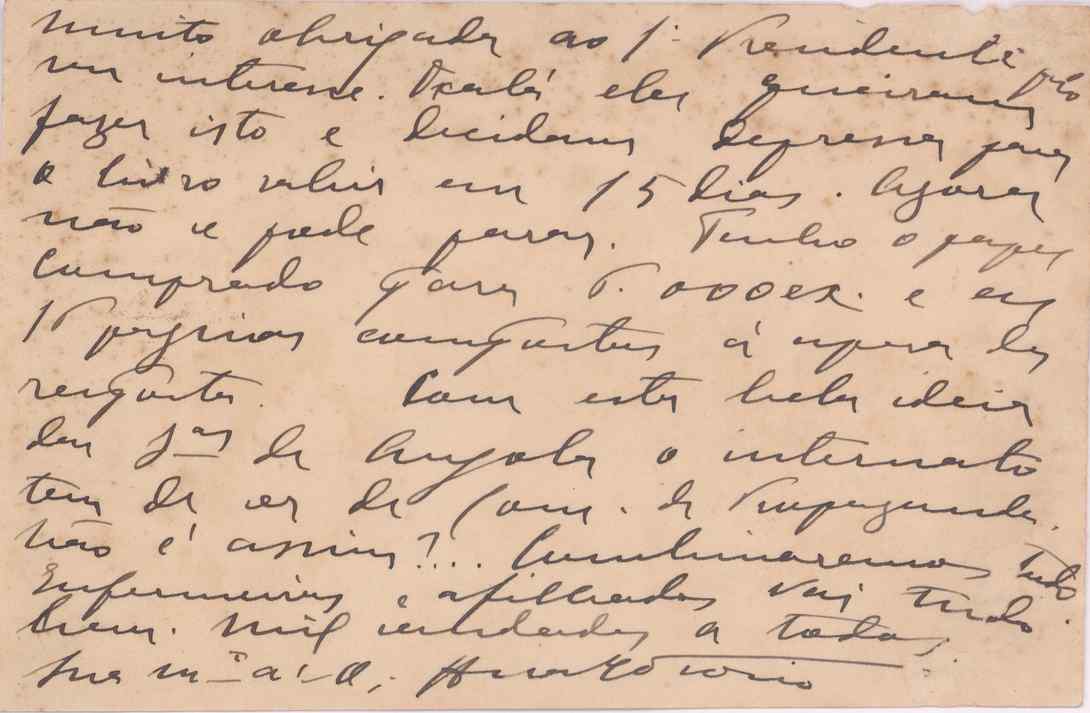 muito obrigada ao Sr. Presidente pelo
seu interesse. Oxalá eles queiram
fazer isto e decidam depressa para
o livro sahir em 15 dias. Agora
não se pode parar. Tenho o papel
comprado para 5.000 ex. e as
paginas compostas á espera da
resposta. Com esta bela ideia
das Sras de Angola o internato
tem de ser de Com. de Propaganda.
Não é assim?... Combinaremos tudo
Enfermeiras e afilhadas vai tudo
bem. Mil saudades a todas.
Sua mto a. O.